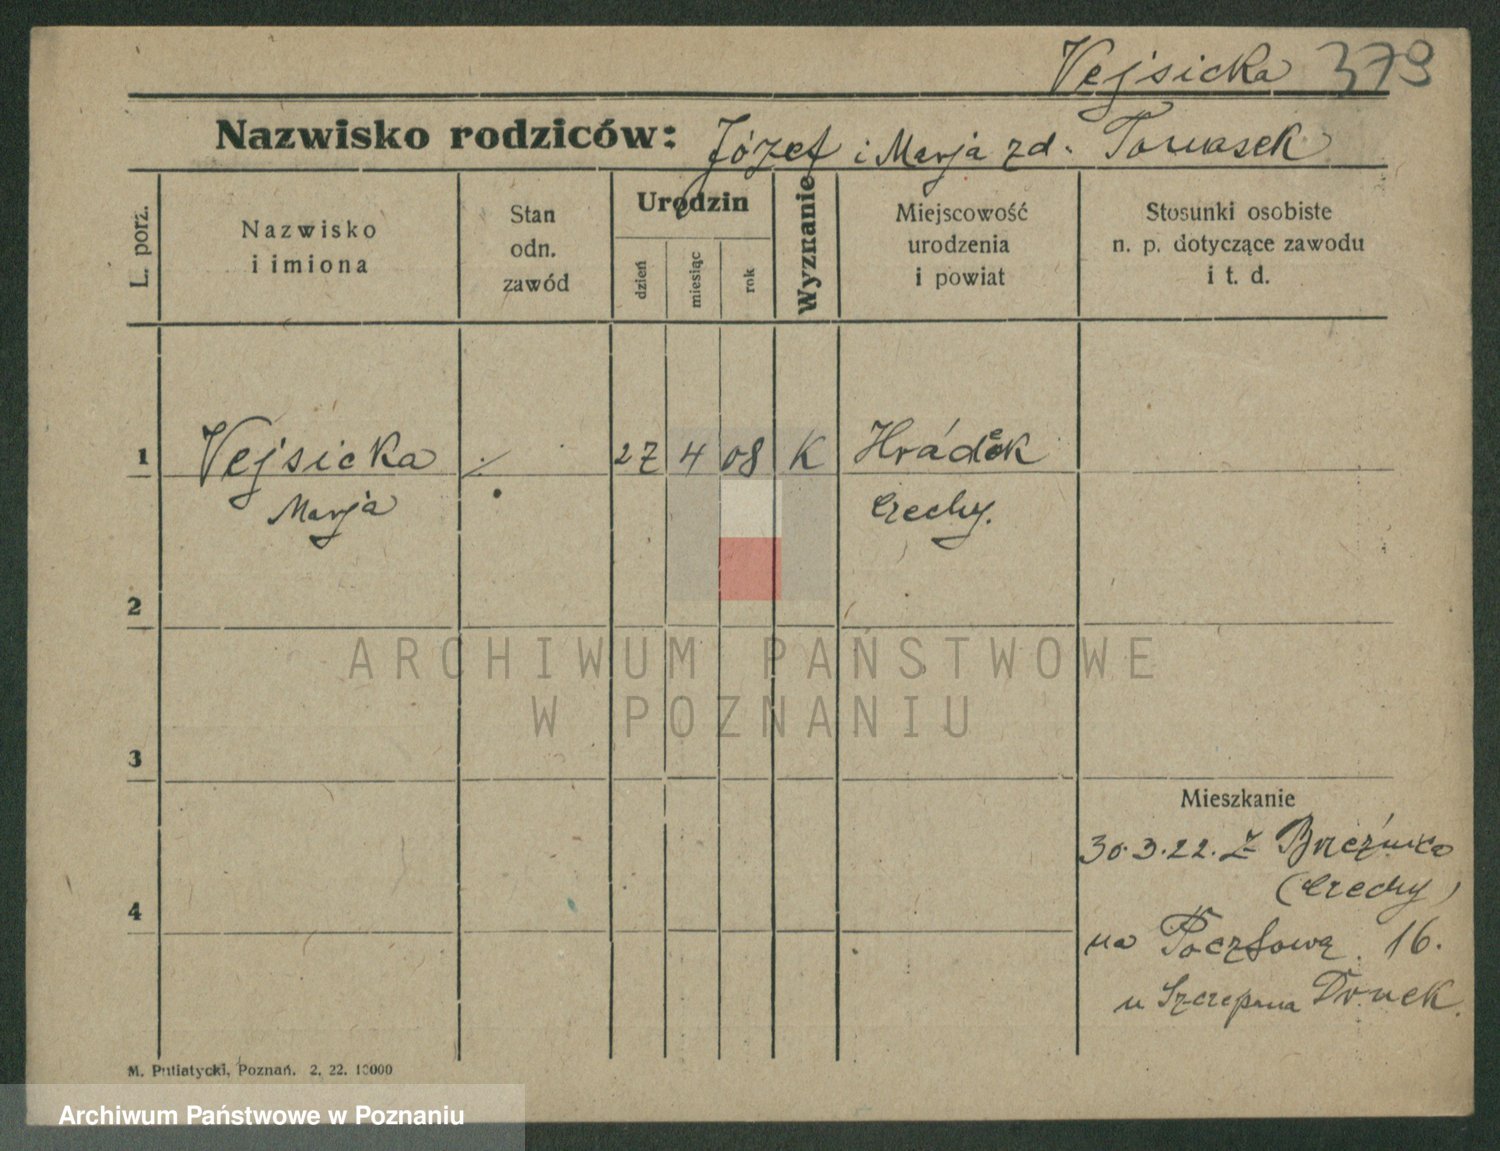 Vejsicka 379
Nazwisko rodziców: Józef i Marja zd. Tomasek
L. porz.
Nazwisko
i imiona
Stan
odn.
zawód
Urodzin
dzień
miesiąc
rok
Wyznanie
Miejscowość
urodzenia
i powiat
Stosunki osobiste
n. p. dotyczące zawodu
i t. d.
1 Vejsicka 27 4 08 K Hrádek
Marja Czechy.
2
ARCHIWUM PAŃSTWOWE
W POZNANIU
3
Mieszkanie
30.3.22. z
(Czechy)
4
na Pocztową 16.
u Szczepana
M. Putiatycki, Poznań. 2. 22. 10000
Archiwum Państwowe w Poznaniu